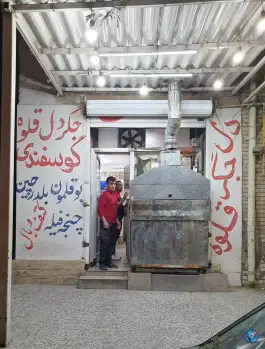 جگر دل قلوه
گوسفندی
بوقلمون بلدرچین
چنجه فیله
دل جگر قلوه